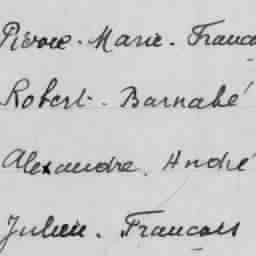 Pierre. Marie. Franço
Robert. Barnabé
Alexandre. André
Julien. François